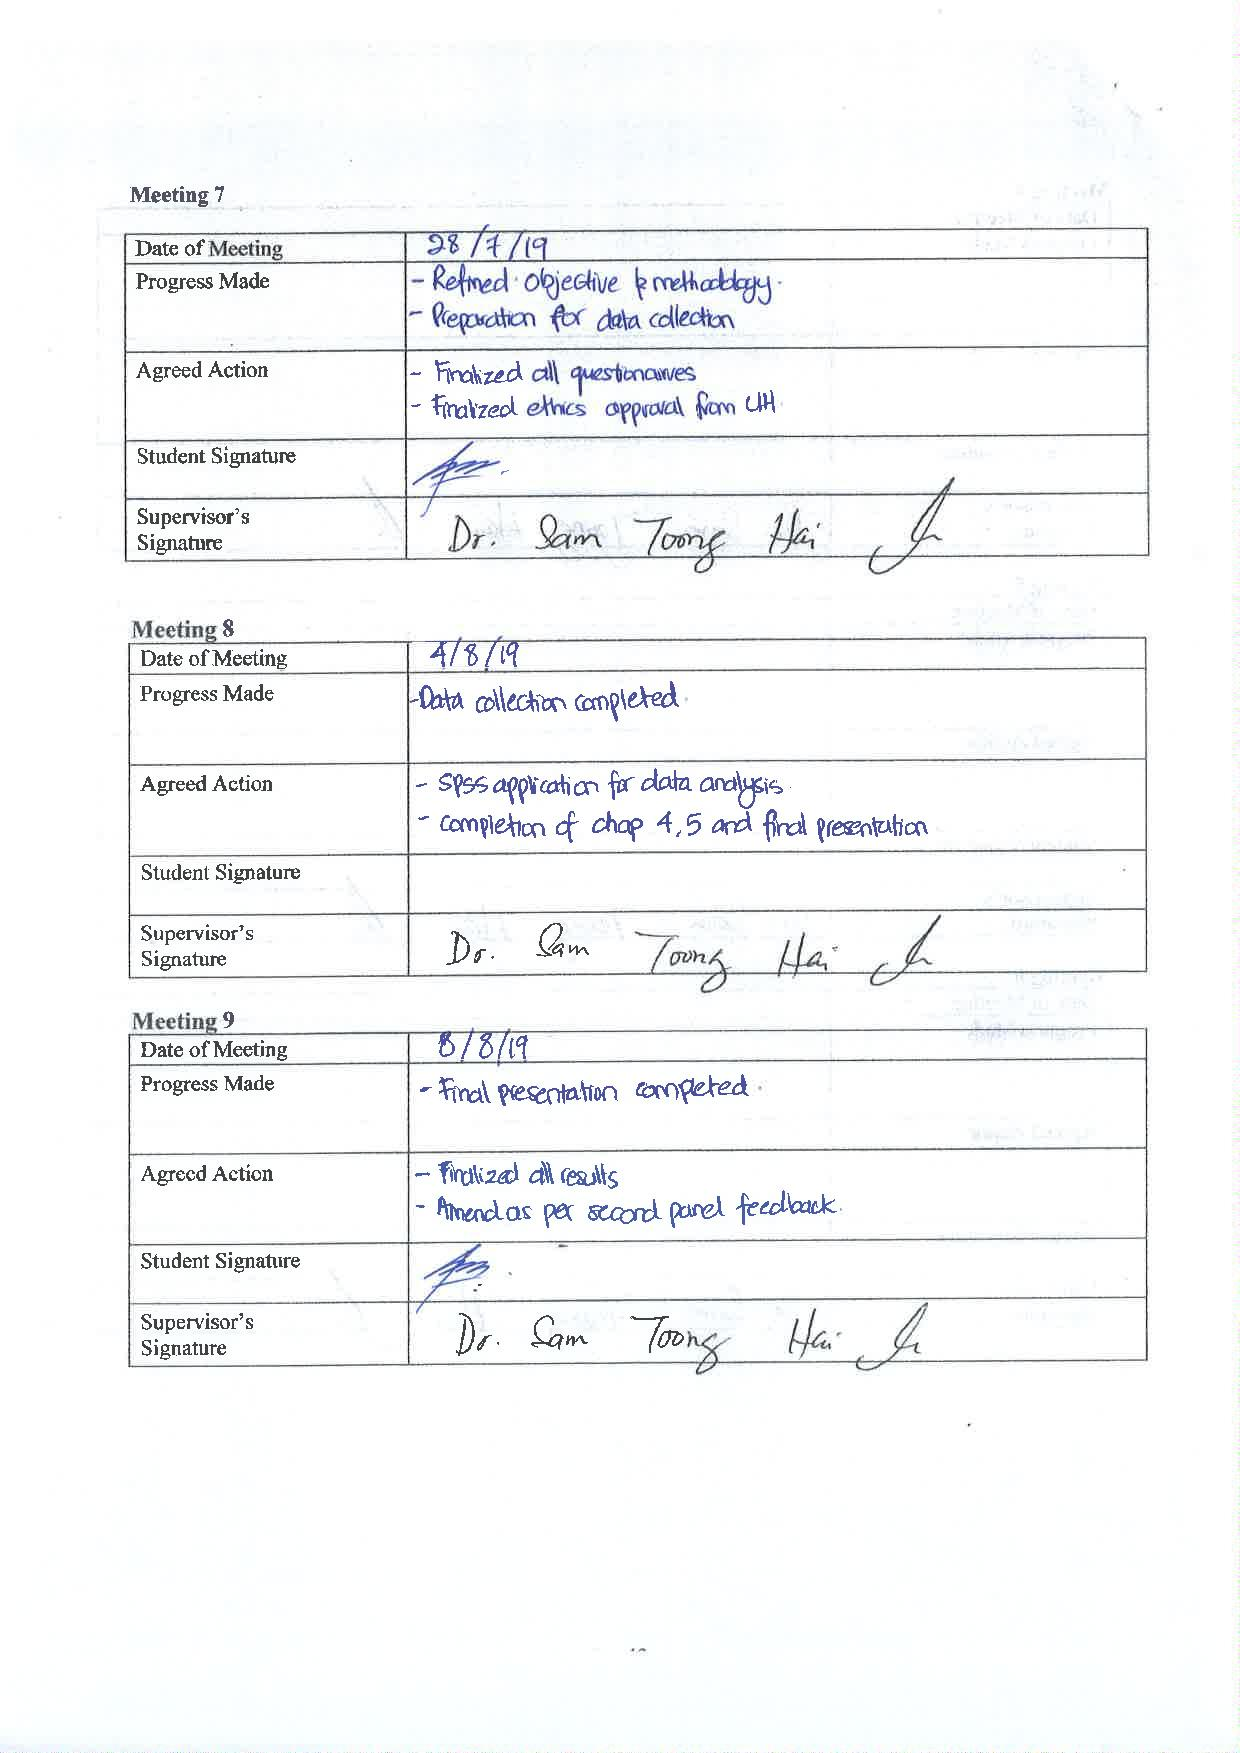 Meeting 7
Date of Meeting 28/7/19
Progress Made - Refined objective & methodology.
- Preparation for data collection
Agreed Action - Finalized all questionaires
- Finalized ethics approval from UH.
Student Signature
Supervisor's Dr. Sam Toong Hai
Signature
Meeting 8
Date of Meeting 4/8/19
Progress Made -Data collection completed.
Agreed Action - SPSS application for data analysis.
- completion of chap 4,5 and final presentation
Student Signature
Supervisor's Dr. Sam Toong Hai
Signature
Meeting 9
Date of Meeting 8/8/19
Progress Made - Final presentation completed.
Agreed Action - Finalized all results
- Amend as per second panel feedback.
Student Signature
Supervisor's Dr. Sam Toong Hai
Signature